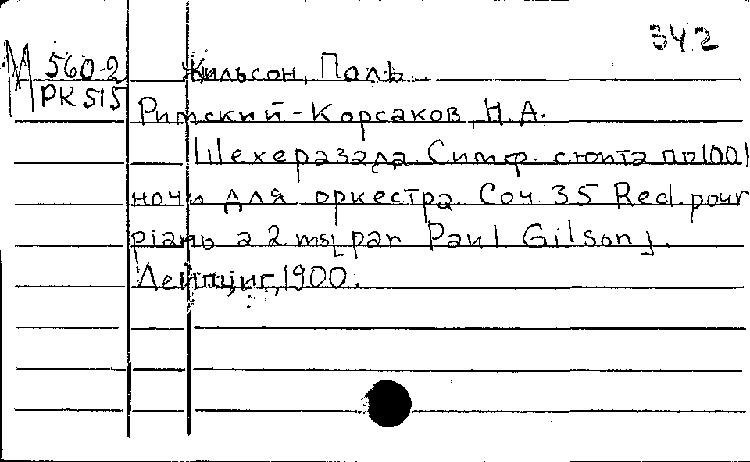 34.2
М 560-2 Жильсон, Поль.
РК 515
Римский-Корсаков, Н.А.
Шехеразада. Симф. сюита по 1001
ночи для оркестра. Соч. 35 Red. pour
piano a 2 ms [par Paul Gilson].
Лейпциг, 1900.